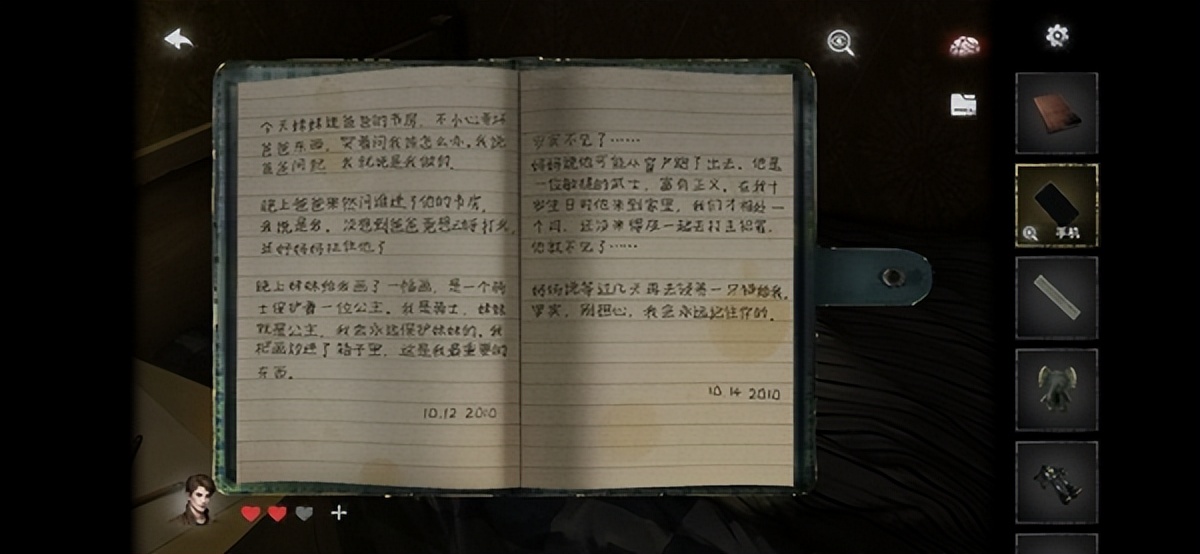 今天妹妹进爸爸的书房，不小心弄坏
爸爸东西，哭着问我该怎么办，我说
爸爸问起 我就说是我做的。
晚上爸爸果然问谁进了他的书房，
我说是我，没想到爸爸竟想动手打我，
还好妈妈拦住他了
晚上妹妹给我画了一幅画，是一个骑
士保护着一位公主。我是骑士，妹妹
就是公主，我会永远保护妹妹的。我
把画放进了箱子里，这是我最重要的
东西。
10.12 2010
不见了……
妈妈说他可能从窗户跑了出去。他是
一位敏捷的武士，富有正义。在我十
岁生日时他来到家里，我们才相处一
个月，还没来得及一起去打击犯罪，
他就不见了……
妈妈说等过几天再去领养一只猫给我。
别担心，我会永远记住你的。
10.14 2010
手机